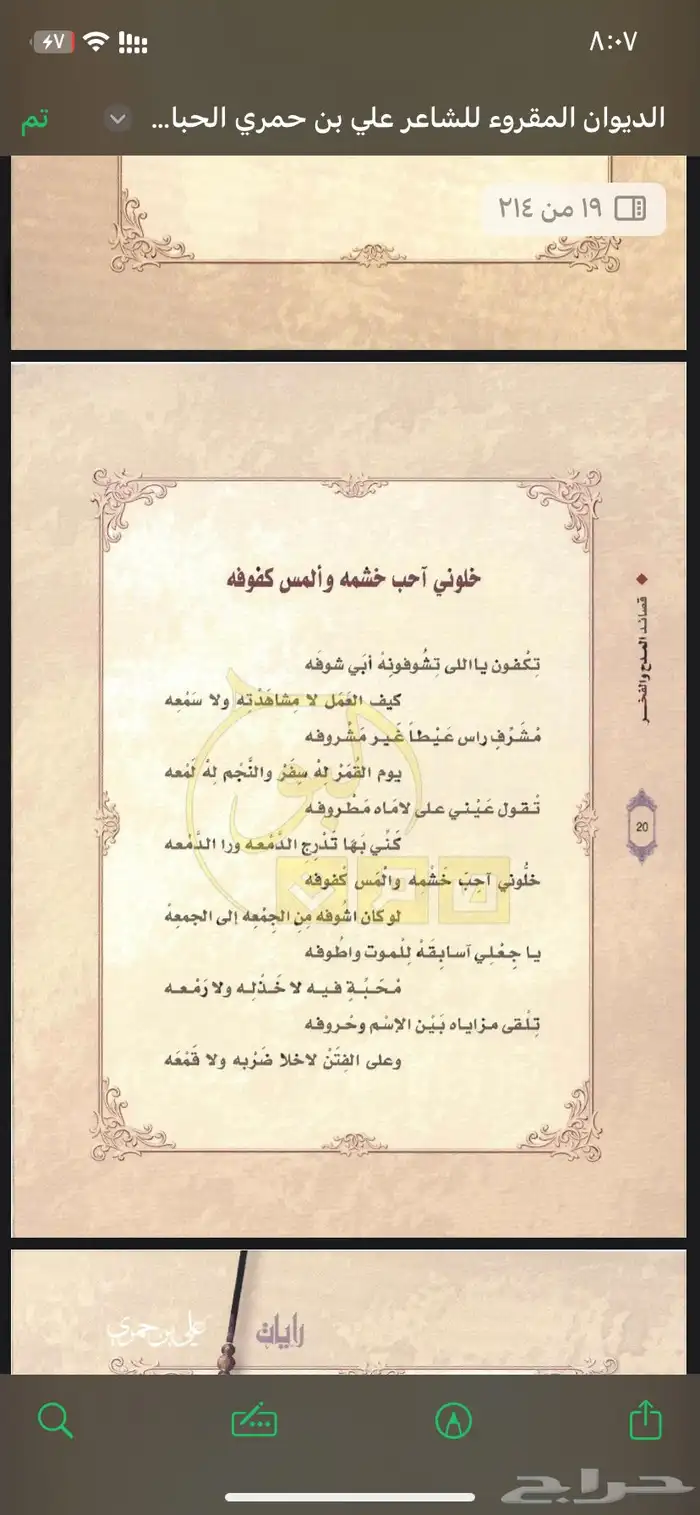 ٨:٠٧
٧
الديوان المقروء للشاعر علي بن حمري الحبا...
تم
١٩ من ٢١٤
خلوني آحب خشمه وألمس كفوفه
قصائد المدح والفخر
تكْفون يا اللي تشُوفونِهْ أبَي شوفَه
كيف العَمَل لا مِشاهَدْتِه ولا سَمْعِه
مُشَرِّفٍ راس عَيْطاً غَير مَشْروفه
يوم القُمَرْ لِهْ سِفَرْ والنَّجْم لِهْ لَمْعه
تْقول عَيْني على لامَاه مَطْروفه
كَنِّي بَهَا تَدْرِج الدَّمْعه ورا الدَّمْعه
خلُّوني آحِبّ خَشْمه والْمَس كْفوفه
لو كان اشُوفه مِن الجِمْعِه إلى الجمعِهْ
يا جِعْلِي آسابِقَهْ لِلْموت واطُوفه
مْحَبِّةٍ فيه لا خَذْلِه ولا رَمْعه
20
تِلْقى مزاياه بَيْن الإسْم وحْروفه
وعلى الفِتَنْ لاخلا ضَرْبه ولا قَمْعَه
رايات
علي بن حمري
حراج